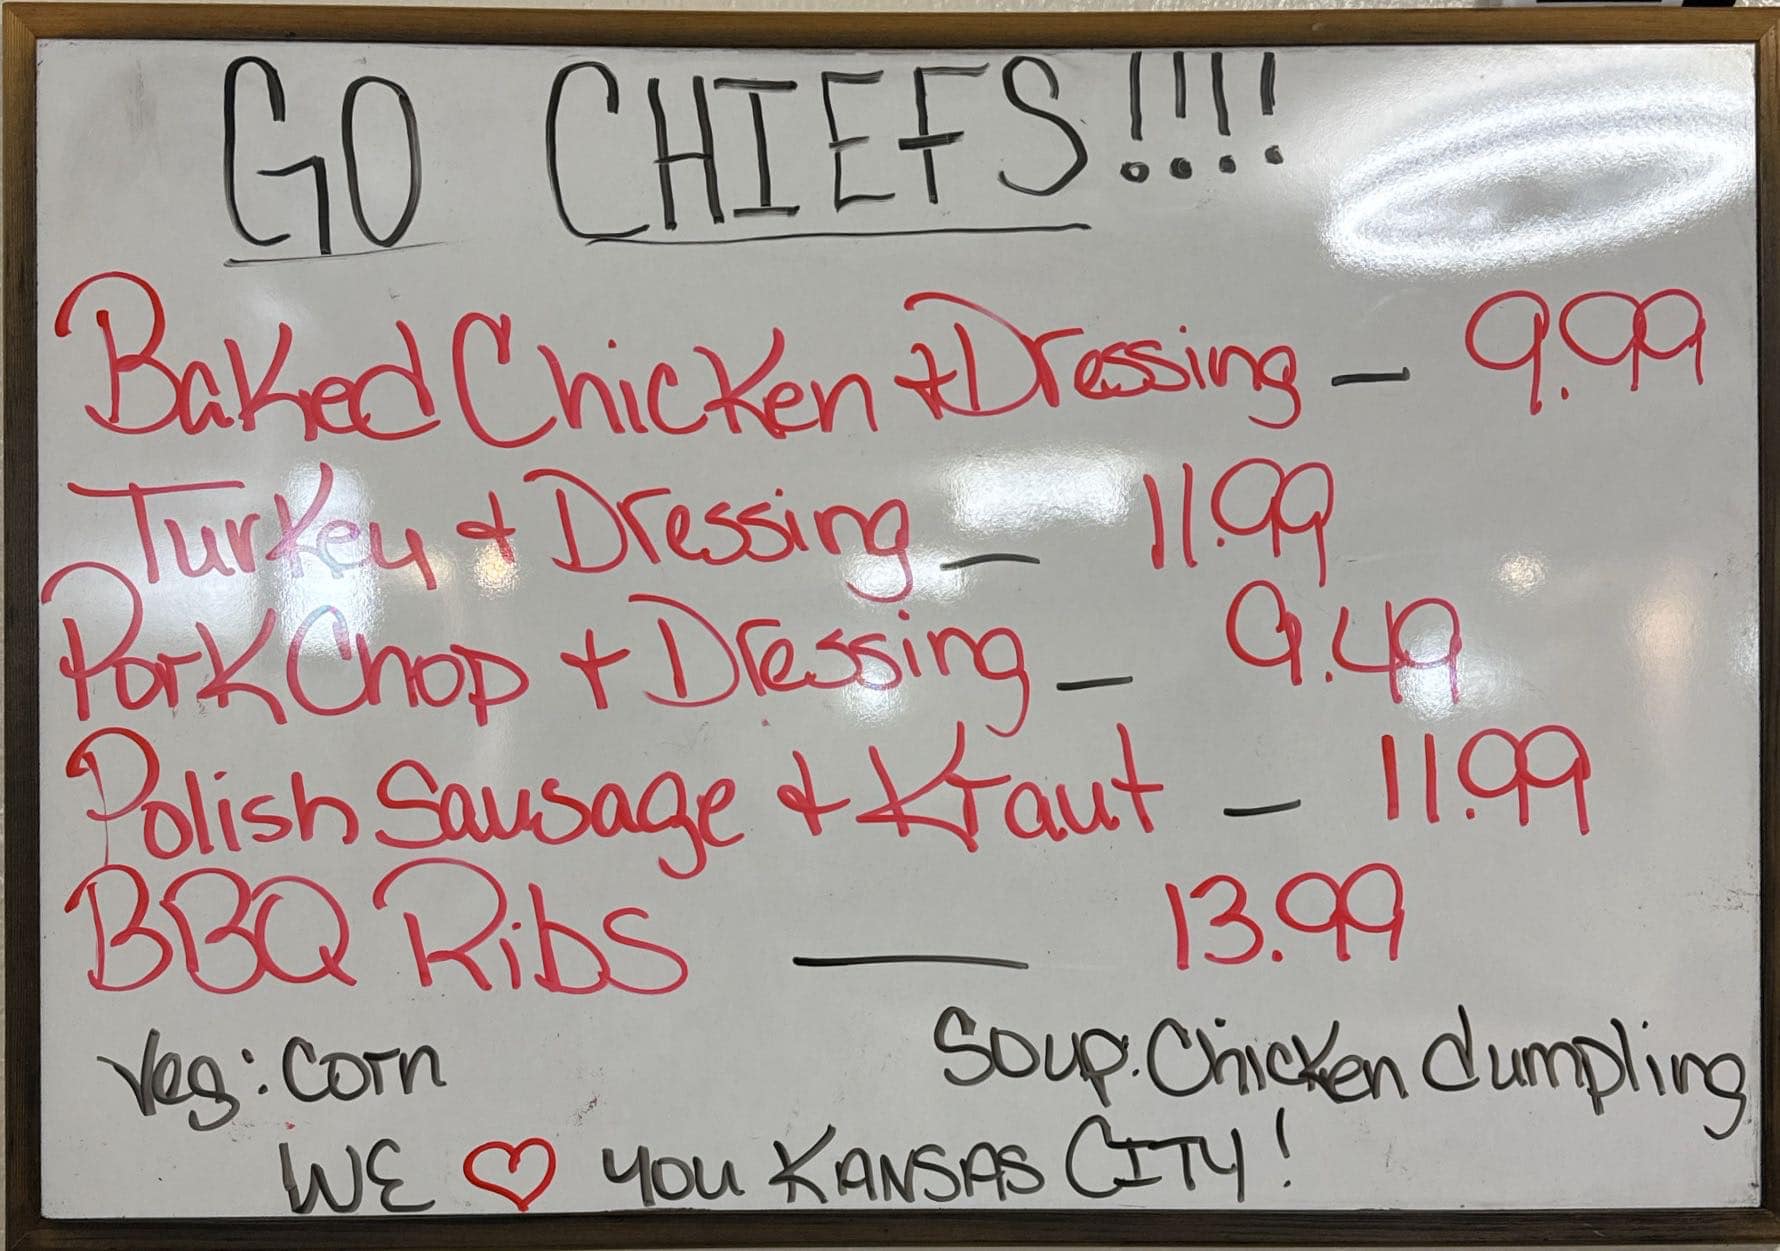 GO CHIEFS!!!!
Baked Chicken + Dressing — 9.99
Turkey + Dressing — 11.99
Pork Chop + Dressing — 9.49
Polish Sausage + Kraut — 11.99
BBQ Ribs — 13.99
Veg: Corn Soup: Chicken dumpling
WE ♡ you KANSAS CITY!